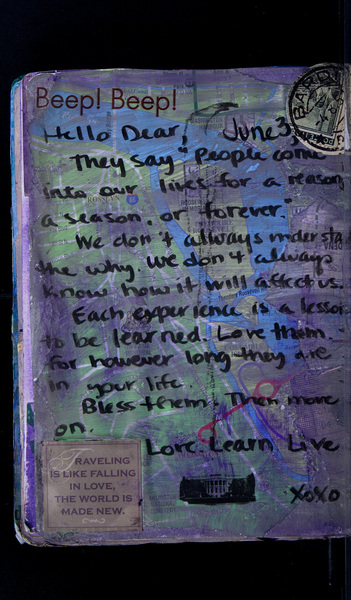 Beep! Beep!
Hello Dear! June 3,
They say "People come
into our lives for a reason,
a season, or forever."
We don't always understa
the why. We don't always
know how it will affect us.
Each experience is a lesson
to be learned. Love them.
for however long they are
in your life.
Bless them. Then move
on.
Love. Learn. Live
XOXO
TRAVELING
IS LIKE FALLING
IN LOVE,
THE WORLD IS
MADE NEW.